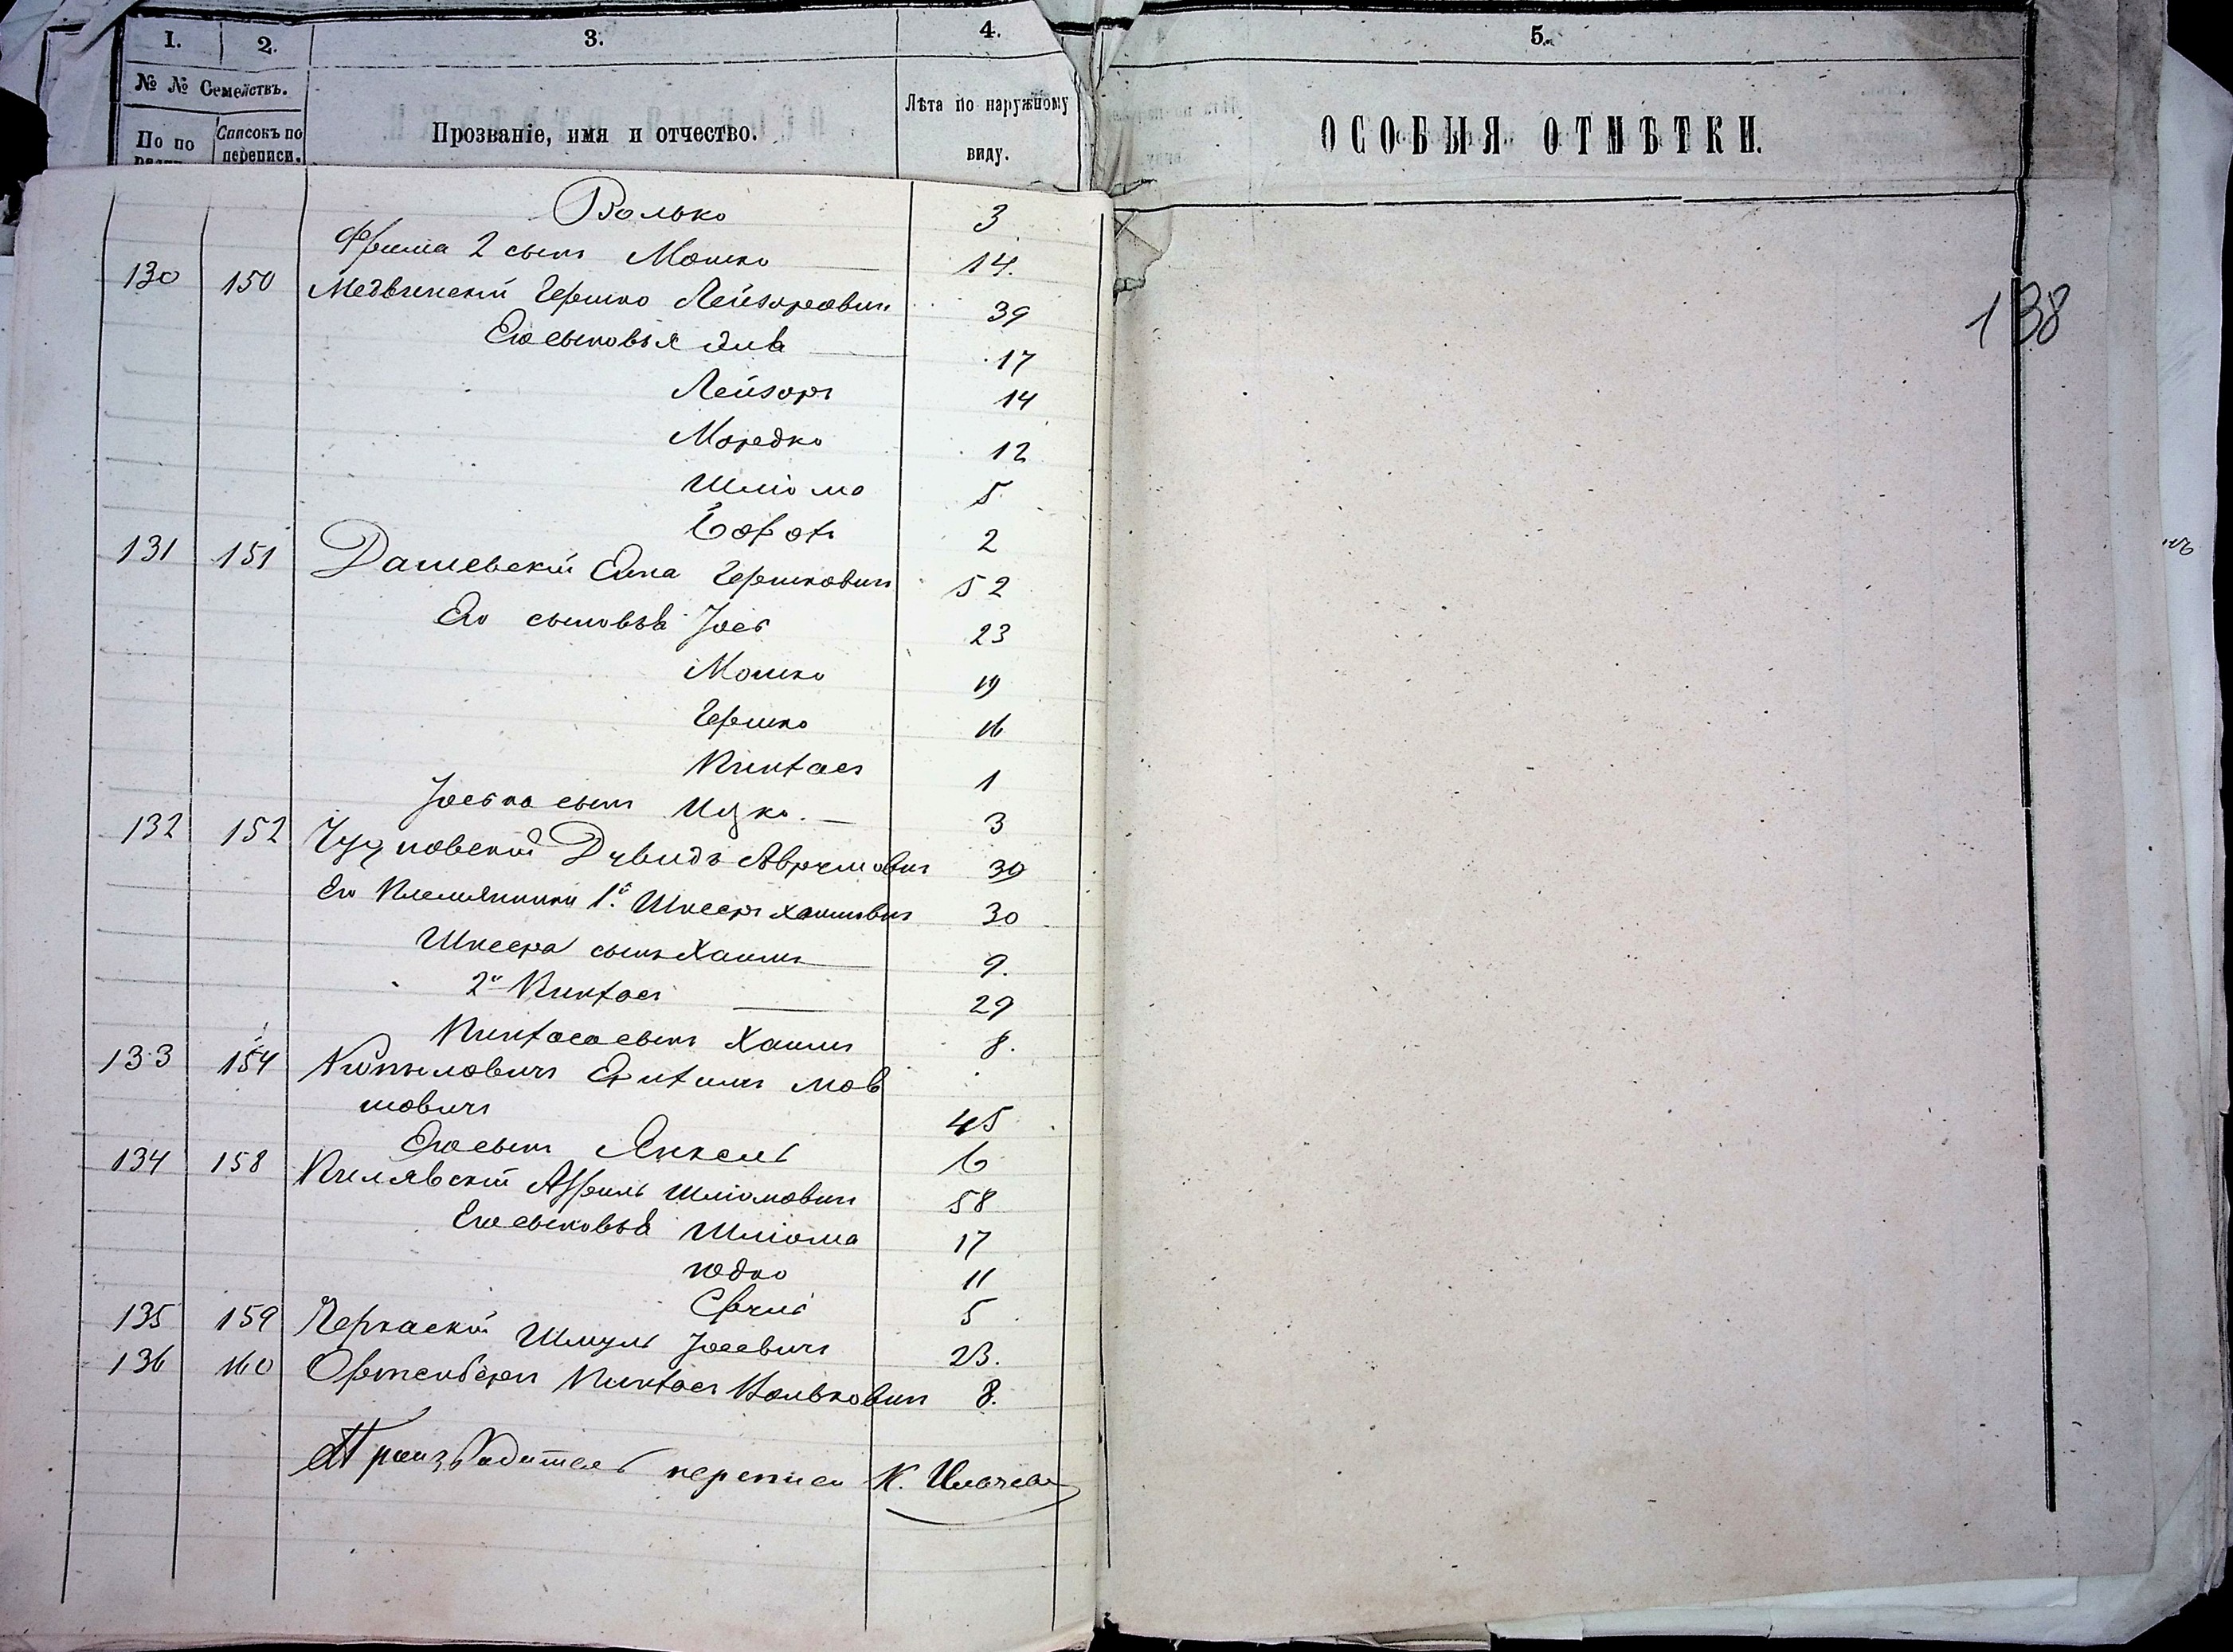 1. 2. 3. 4. 5.
№ № Семействъ.
По по
Списокъ по переписи.
Прозваніе, имя и отчество.
Лѣта по наружному виду.
ОСОБЫЯ ОТМѢТКИ.
Волько 3
Фроима 2 сынъ Мошко 14.
130 150 Медвинскій Гершко Лейзоровичъ 39
138
Его сыновья Эля 17
Лейзоръ 14
Мордко 12
Шліома 5
2
131 151 Дашевскій Гершковичъ 52
Его сыновья Іось 23
Мошко 19
Гершко 16
Пинхасъ 1
Іоська сынъ Ицко. 3
132 152 Чудновскій Давидъ Аврумовичъ 39
Его племянники 1й Шнееръ Хаимовичъ 30
Шнеера сынъ Хаимъ 9.
2й Пинхасъ 29
Пинхаса сынъ Хаимъ 8.
133 154 Копыловичъ мов
шовичъ 45
Его сынъ Янкель 6
134 158 Пилявскій Шліомовичъ 58
Его сыновья Шліома 17
Юдко 11
Сруль 5
135 159 Черкаскій Шмуль Іосевичъ 23.
136 160 Ортенбергъ Пинхасъ Вольковичъ 8.
Производитель переписи К.